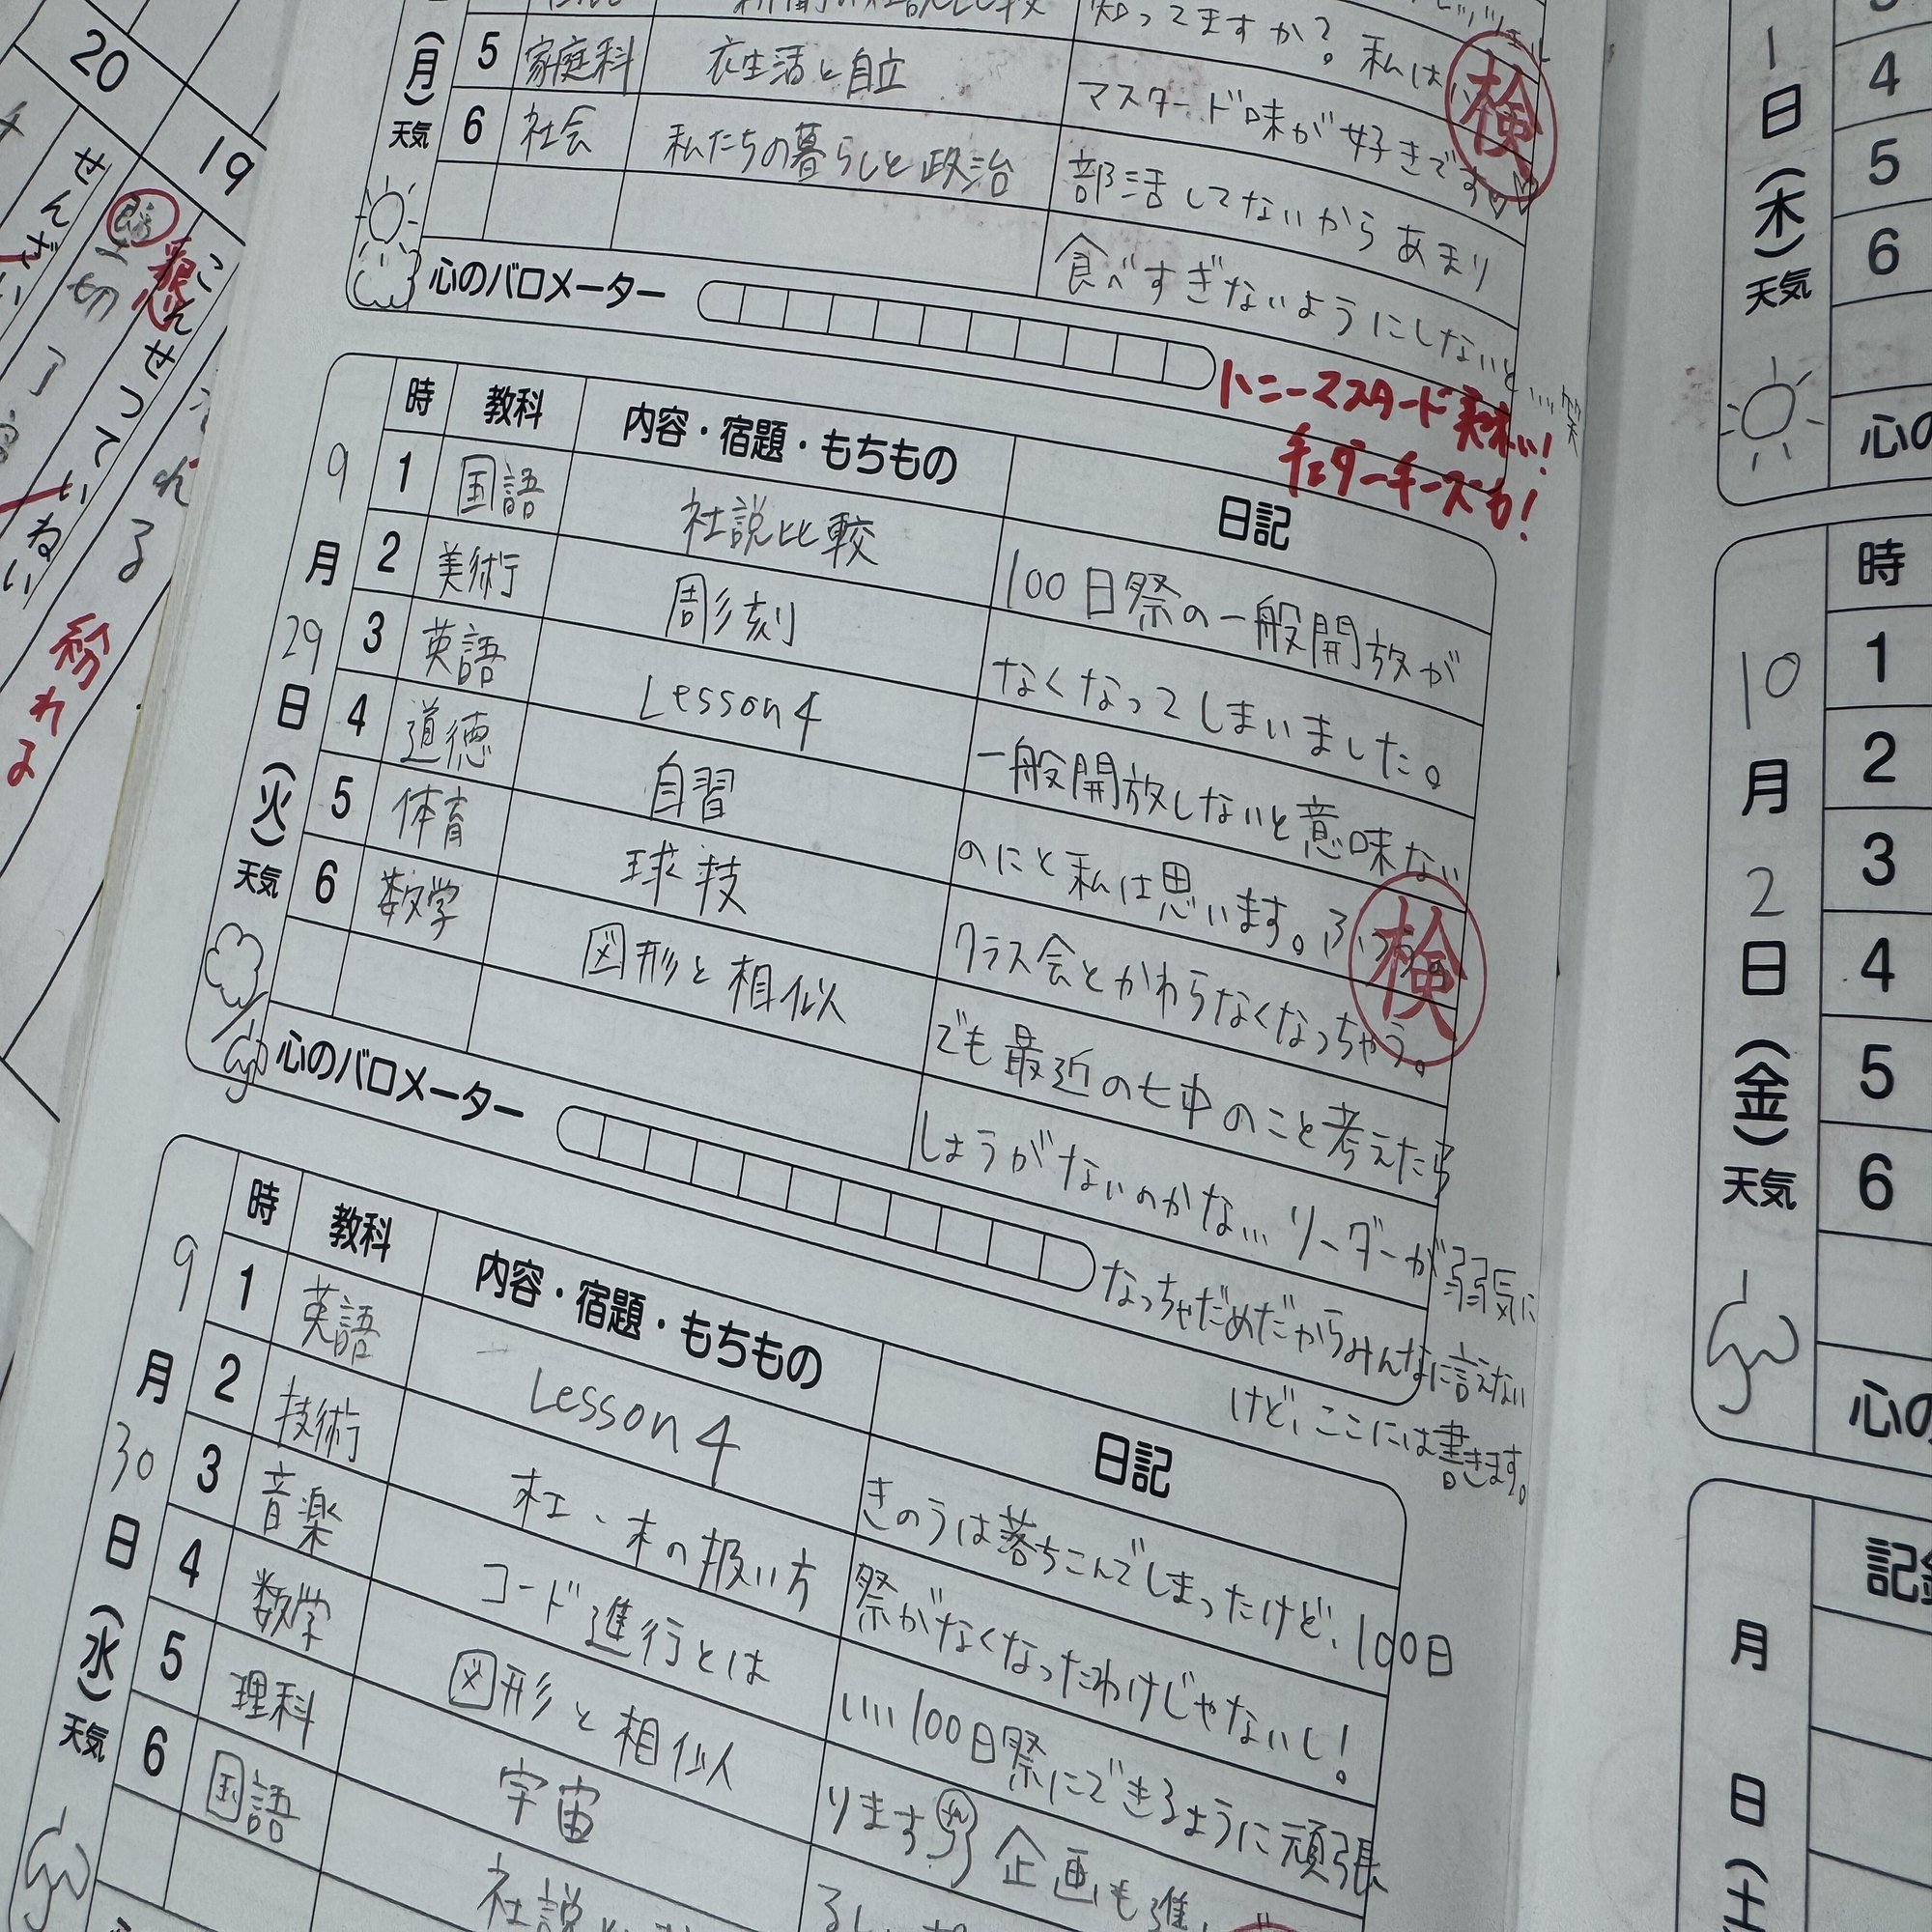 20
19
せんざい
こんせつていねい
懇
切
れる
紛れる
(月)
天気
5 家庭科 衣生活と自立
6 社会 私たちの暮らしと政治
知ってますか? 私は
マスタード味が好きです♡♡
部活してないからあまり
食べすぎないようにしないと…笑
検
心のバロメーター
ハニーマスタード美味い!
チェダーチーズも!
9月29日(火)
天気
時 教科 内容・宿題・もちもの 日記
1 国語 社説比較
2 美術 彫刻
3 英語 Lesson4
4 道徳 自習
5 体育 球技
6 数学 図形と相似
100日祭の一般開放が
なくなってしまいました。
一般開放しないと意味ない
のにと私は思います。ふつうの
クラス会とかわらなくなっちゃう。
でも最近の七中のこと考えたら
しょうがないのかな… リーダーが弱気に
なっちゃだめだからみんなに言えない
けど、ここには書きます。
検
心のバロメーター
9月30日(水)
天気
時 教科 内容・宿題・もちもの 日記
1 英語 Lesson4
2 技術 木の扱い方
3 音楽 コード進行とは
4 数学 図形と相似
5 理科 宇宙
6 国語 社説
きのうは落ちこんでしまったけど、100日
祭がなくなったわけじゃないし!
いい100日祭にできるように頑張
ります 企画も進
1日(木)
天気
4
5
6
心の
10月2日(金)
天気
時
1
2
3
4
5
6
心の
月
日
(土